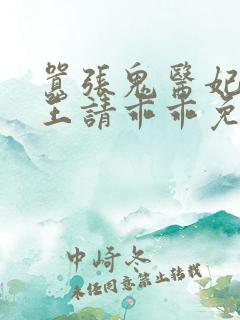 囂張鬼醫妃
王請乖乖免
中崎冬
未經同意禁止转載